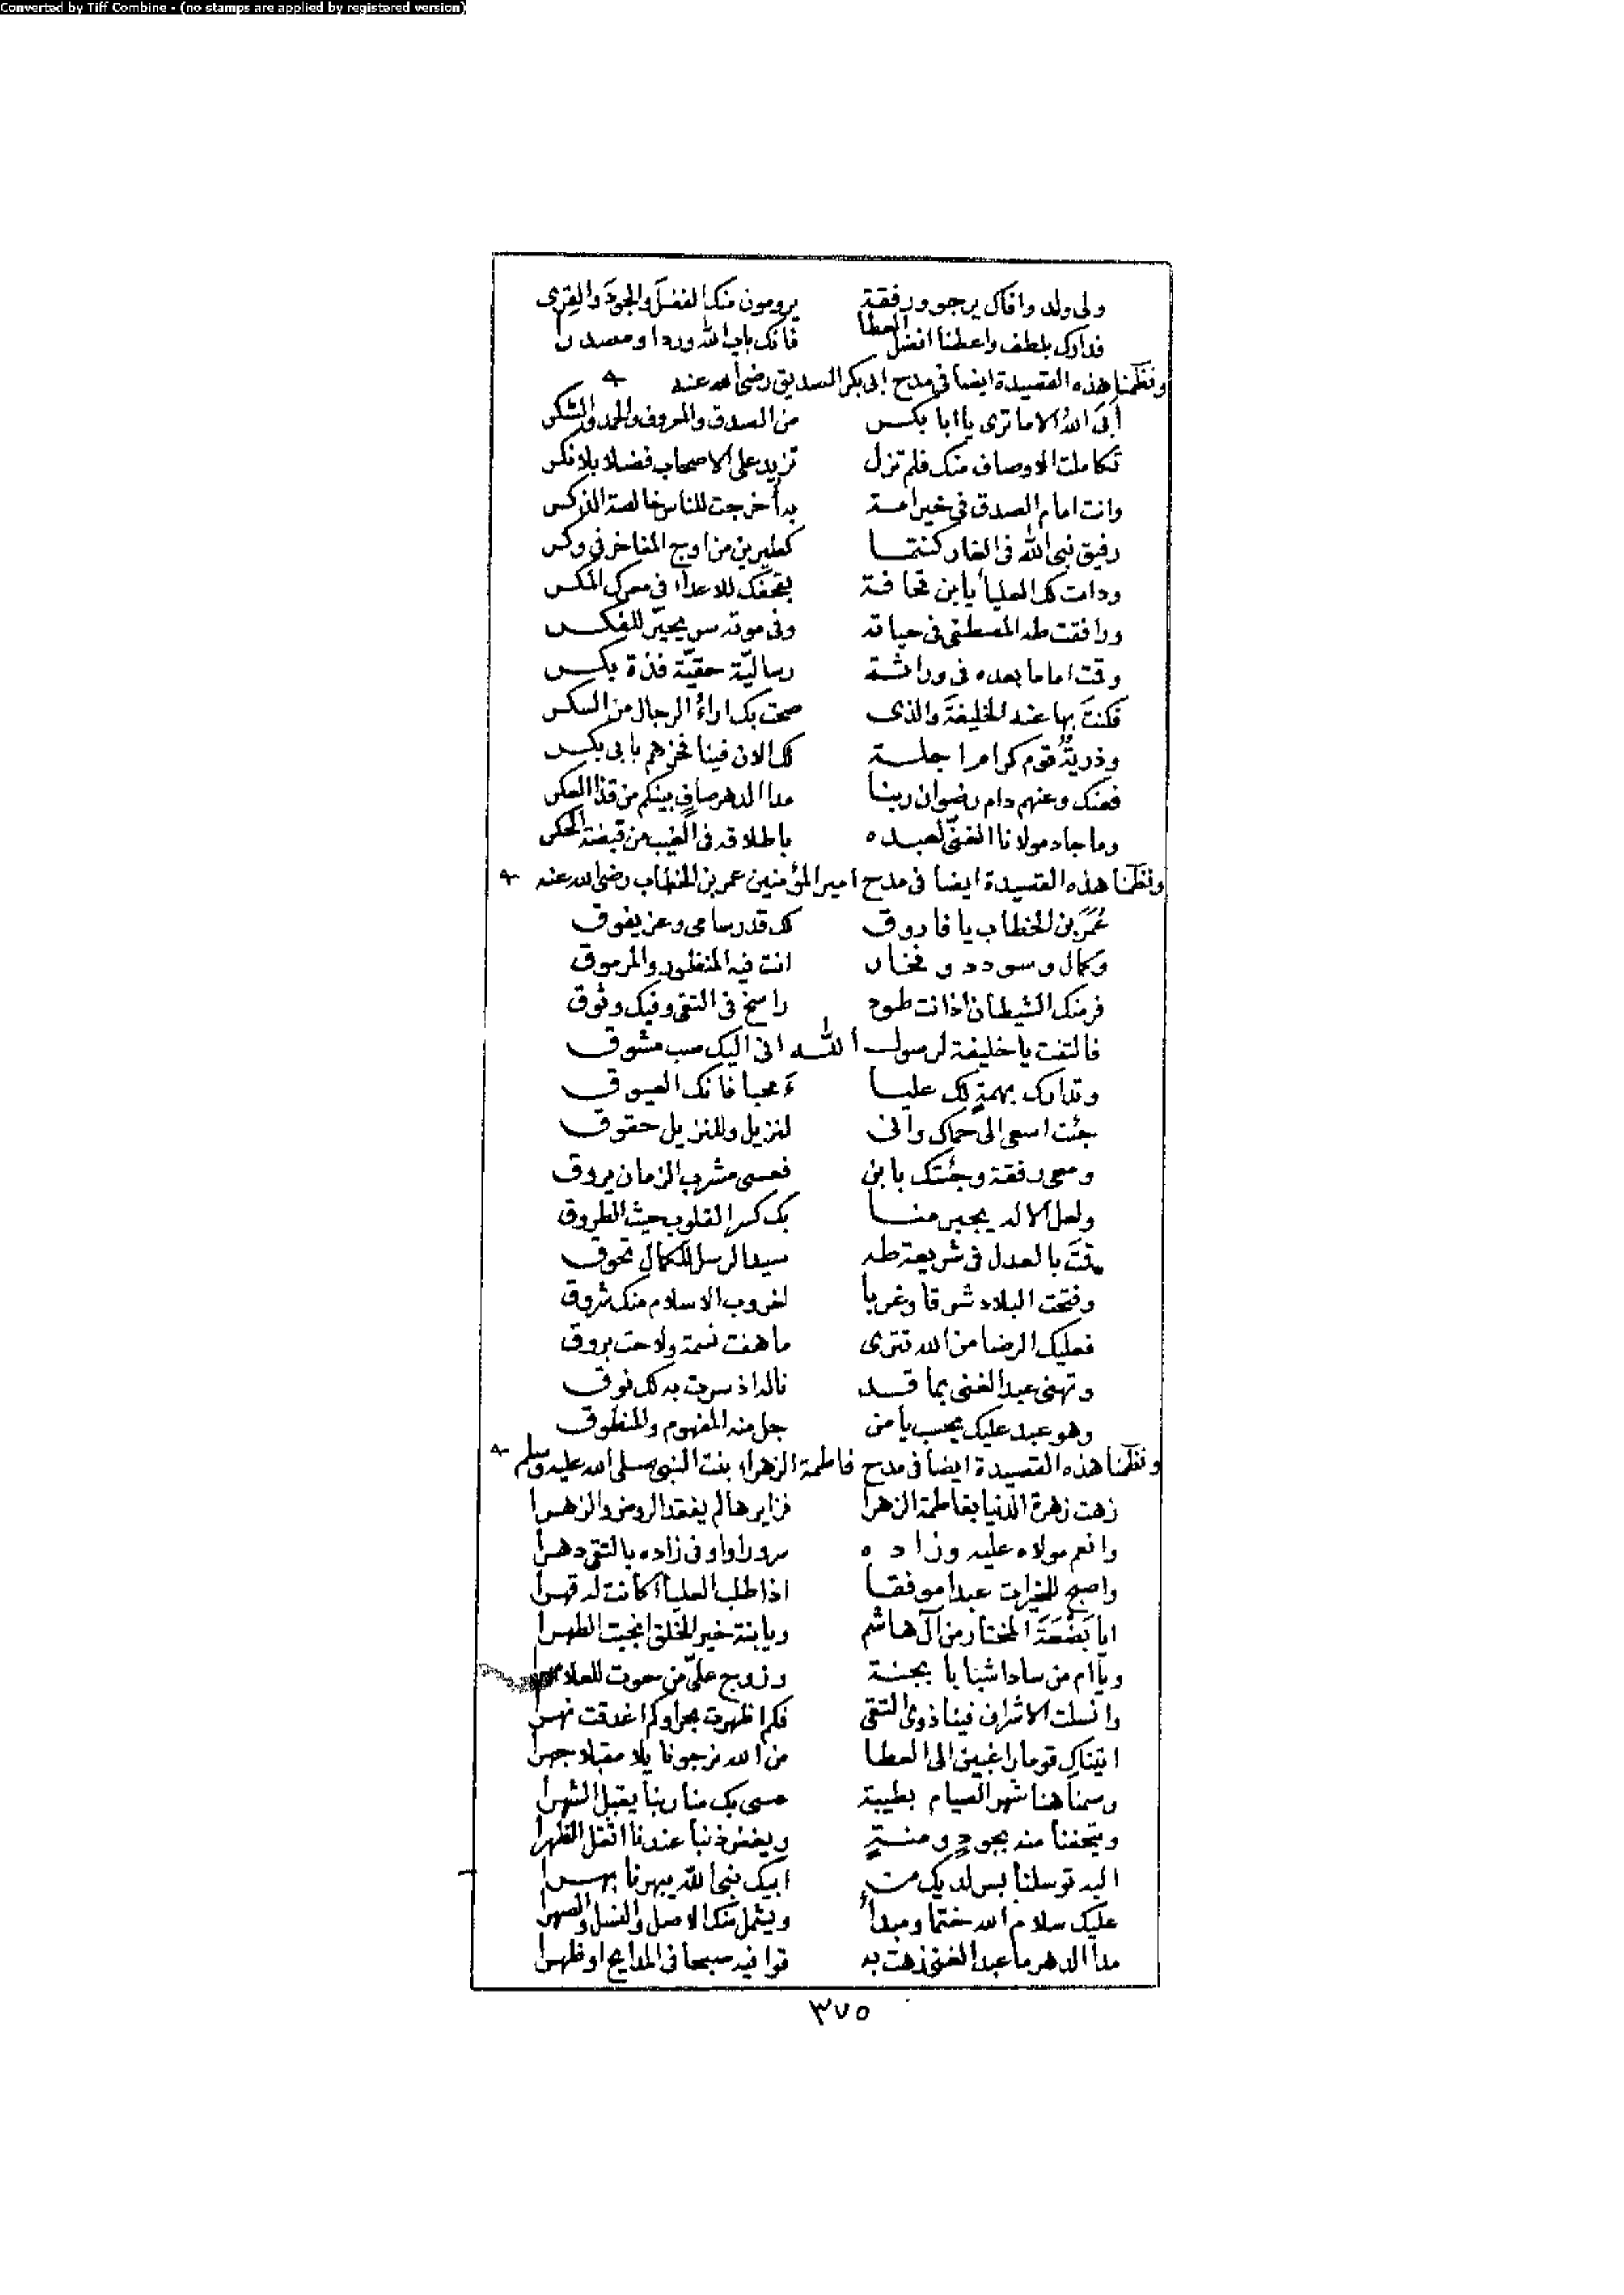 Converted by Tiff Combine - (no stamps are applied by registered version)
ولى ولد وافاك يرجو ورفقة يرومون منك الفضل والجود والقرى
فدارك بلطف واعطنا افضل العطا فانك باب الله وردا ومصدرا
ونظمنا هذه القصيدة ايضا فى مدح ابى بكر الصديق رضى الله عنه
أبى الله الا ما ترى يا ابا بكر من الصدق والمعروف والحمد والشكر
تكاملت الاوصاف منك فلم تزل تزيد على الاصحاب فضلا بلا نكر
وانت امام الصدق فى خير امة بدأ خرجت للناس خالصة الذكر
رفيق نبى الله فى الغار كنتما كطيرين من اوج المفاخر فى وكر
ودامت لك العليا يا ابن قحافة بقحفك للاعداء فى معرك المكر
ورافقت طه المصطفى فى حياته وفى موته سر يحير للفكر
وقمت اماما بعده فى وراثة رسالية حقية فذة بكر
فكنت بها عند الخليفة والذى صحت بك اراء الرجال من السكر
وذرية قوم كرام اجلة لك الان فينا فخرهم بابى بكر
فعنك وعنهم دام رضوان ربنا مدا الدهر صاف بينكم من قذا العكر
وما جاد مولانا الغنى لعبده باطلاقه فى الغيب من قبضة الحكر
ونظمنا هذه القصيدة ايضا فى مدح امير المؤمنين عمر بن الخطاب رضى الله عنه
عمر بن الخطاب يا فاروق لك قدر سامى وعز يفوق
وكمال وسودد وفخار انت فيه المنظور والمرموق
فر منك الشيطان اذ انت طود راسخ فى التقى وفيك وثوق
فالتفت يا خليفة لرسول الله انى اليك صب مشوق
وتدارك بهمة لك عليا ء محبا فانك العيوق
جئت اسعى الى حماك وانى لنزيل وللنزيل حقوق
ومعى رفقة وجئتك بابن فعسى مشرب الزمان يروق
ولعل الاله يجبر منا بك كسر القلوب حيث الطروق
قمت بالعدل فى شريعة طه سيد الرسل للكمال تحوق
وفتحت البلاد شرقا وغربا لغروب الاسلام منك شروق
فعليك الرضا من الله تترى ما هفت نسمة ولاحت بروق
وتهنى عبد الغنى بما قد ناله اذ سرت به لك نوق
وهو عبد عليك يحسب يا من جل منه المفهوم والمنطوق
ونظمنا هذه القصيدة ايضا فى مدح فاطمة الزهراء بنت النبى صلى الله عليه وسلم
زهت زهرة الدنيا بفاطمة الزهرا فزايرها لم يفقد الروض والزهرا
وانعم مولاه عليه وزاده سرورا واوفى زاده بالتقى دهرا
واصبح للخيرات عبدا موفقا اذا طلب العلياء كانت له قهرا
ايا بضعة المختار من آل هاشم ويا بنة خير الخلق انجبت الطهرا
ويا ام من سادا شبابا بجنة وزوج على من حوت للعلا
وانسلت الاشراف فينا ذوى التقى فكم اظهرت بحرا وكم اغدقت نهرا
اتيناك قوما راغبين الى العطا من الله نرجو نايلا مقبلا جهرا
وصمنا هنا شهر الصيام بطيبة عسى بك منا ربنا يقبل الشهرا
ويتحفنا منه بجود ومنة ويغفر ذنبا عندنا اثقل الظهرا
اليه توسلنا بسر لديك من ابيك نبى الله يبهرنا بهرا
عليك سلام الله ختما ومبدأ ويشمل منك الاصل والنسل والصهرا
مدا الدهر ما عبد الغنى زهت به قوافيه صبحا فى المدايح او ظهرا
٣٧٥